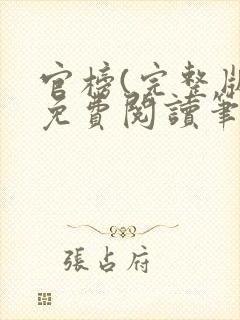 官榜(完整版
免費閱讀筆
張占府